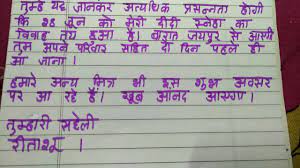 तुम्हें यह जानकर अत्यधिक प्रसन्नता होगी
कि 28 जून को मेरी दीदी स्नेहा का
विवाह तय हुआ है। बारात जयपुर से आएगी
तुम अपने परिवार सहित दो दिन पहले ही
आ जाना।
हमारे अन्य मित्र भी इस शुभ अवसर
पर आ रहे हैं। खूब आनंद आएगा।
तुम्हारी सहेली
रीतांशू।